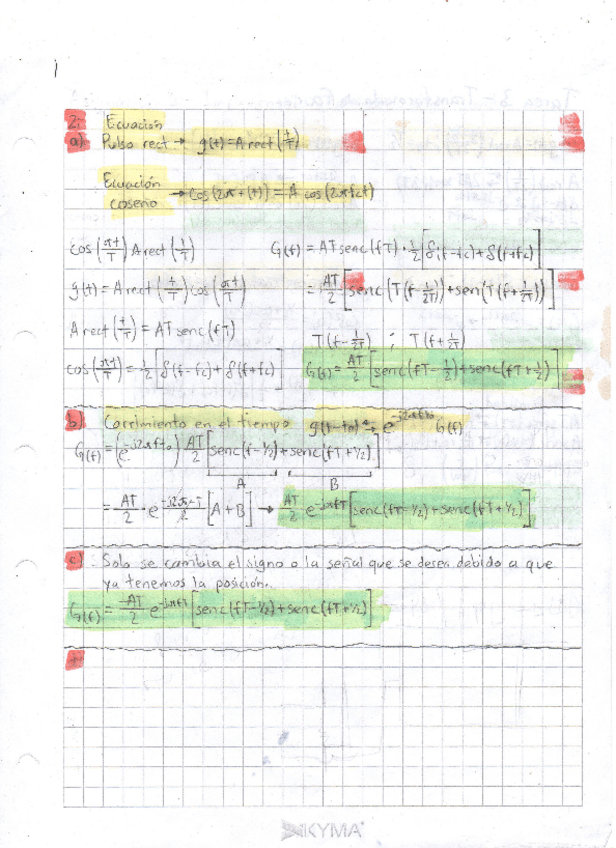 2.- Ecuación
a) Pulso rect → g(t) = A rect(t/T)
Ecuación coseno → cos(2π + (t)) = A cos(2πfct)
cos(πt/T) A rect(t/T)
g(t) = A rect(t/T) cos(πt/T)
A rect(t/T) = AT senc(fT)
cos(πt/T) = 1/2 [δ(f-fc) + δ(f+fc)]
G(f) = AT senc(fT) · 1/2 [δ(f-fc) + δ(f+fc)]
= AT/2 [senc(T(f-1/2T)) + sen(T(f+1/2T))]
T(f-1/2T) ; T(f+1/2T)
G(f) = AT/2 [senc(fT-1/2) + senc(fT+1/2)]
b) Corrimiento en el tiempo g(t-to) → e^-j2πfto G(f)
G(f) = (e^-j2πfto) AT/2 [senc(f-1/2) + senc(fT+1/2)]
A B
= AT/2 · [A+B] → AT/2 e^-jπfT [senc(fT-1/2) + senc(fT+1/2)]
c) Solo se cambia el signo a la señal que se desea debido a que
ya tenemos la posición.
G(f) = -AT/2 e^-jπfT [senc(fT-1/2) + senc(fT+1/2)]
KYMA